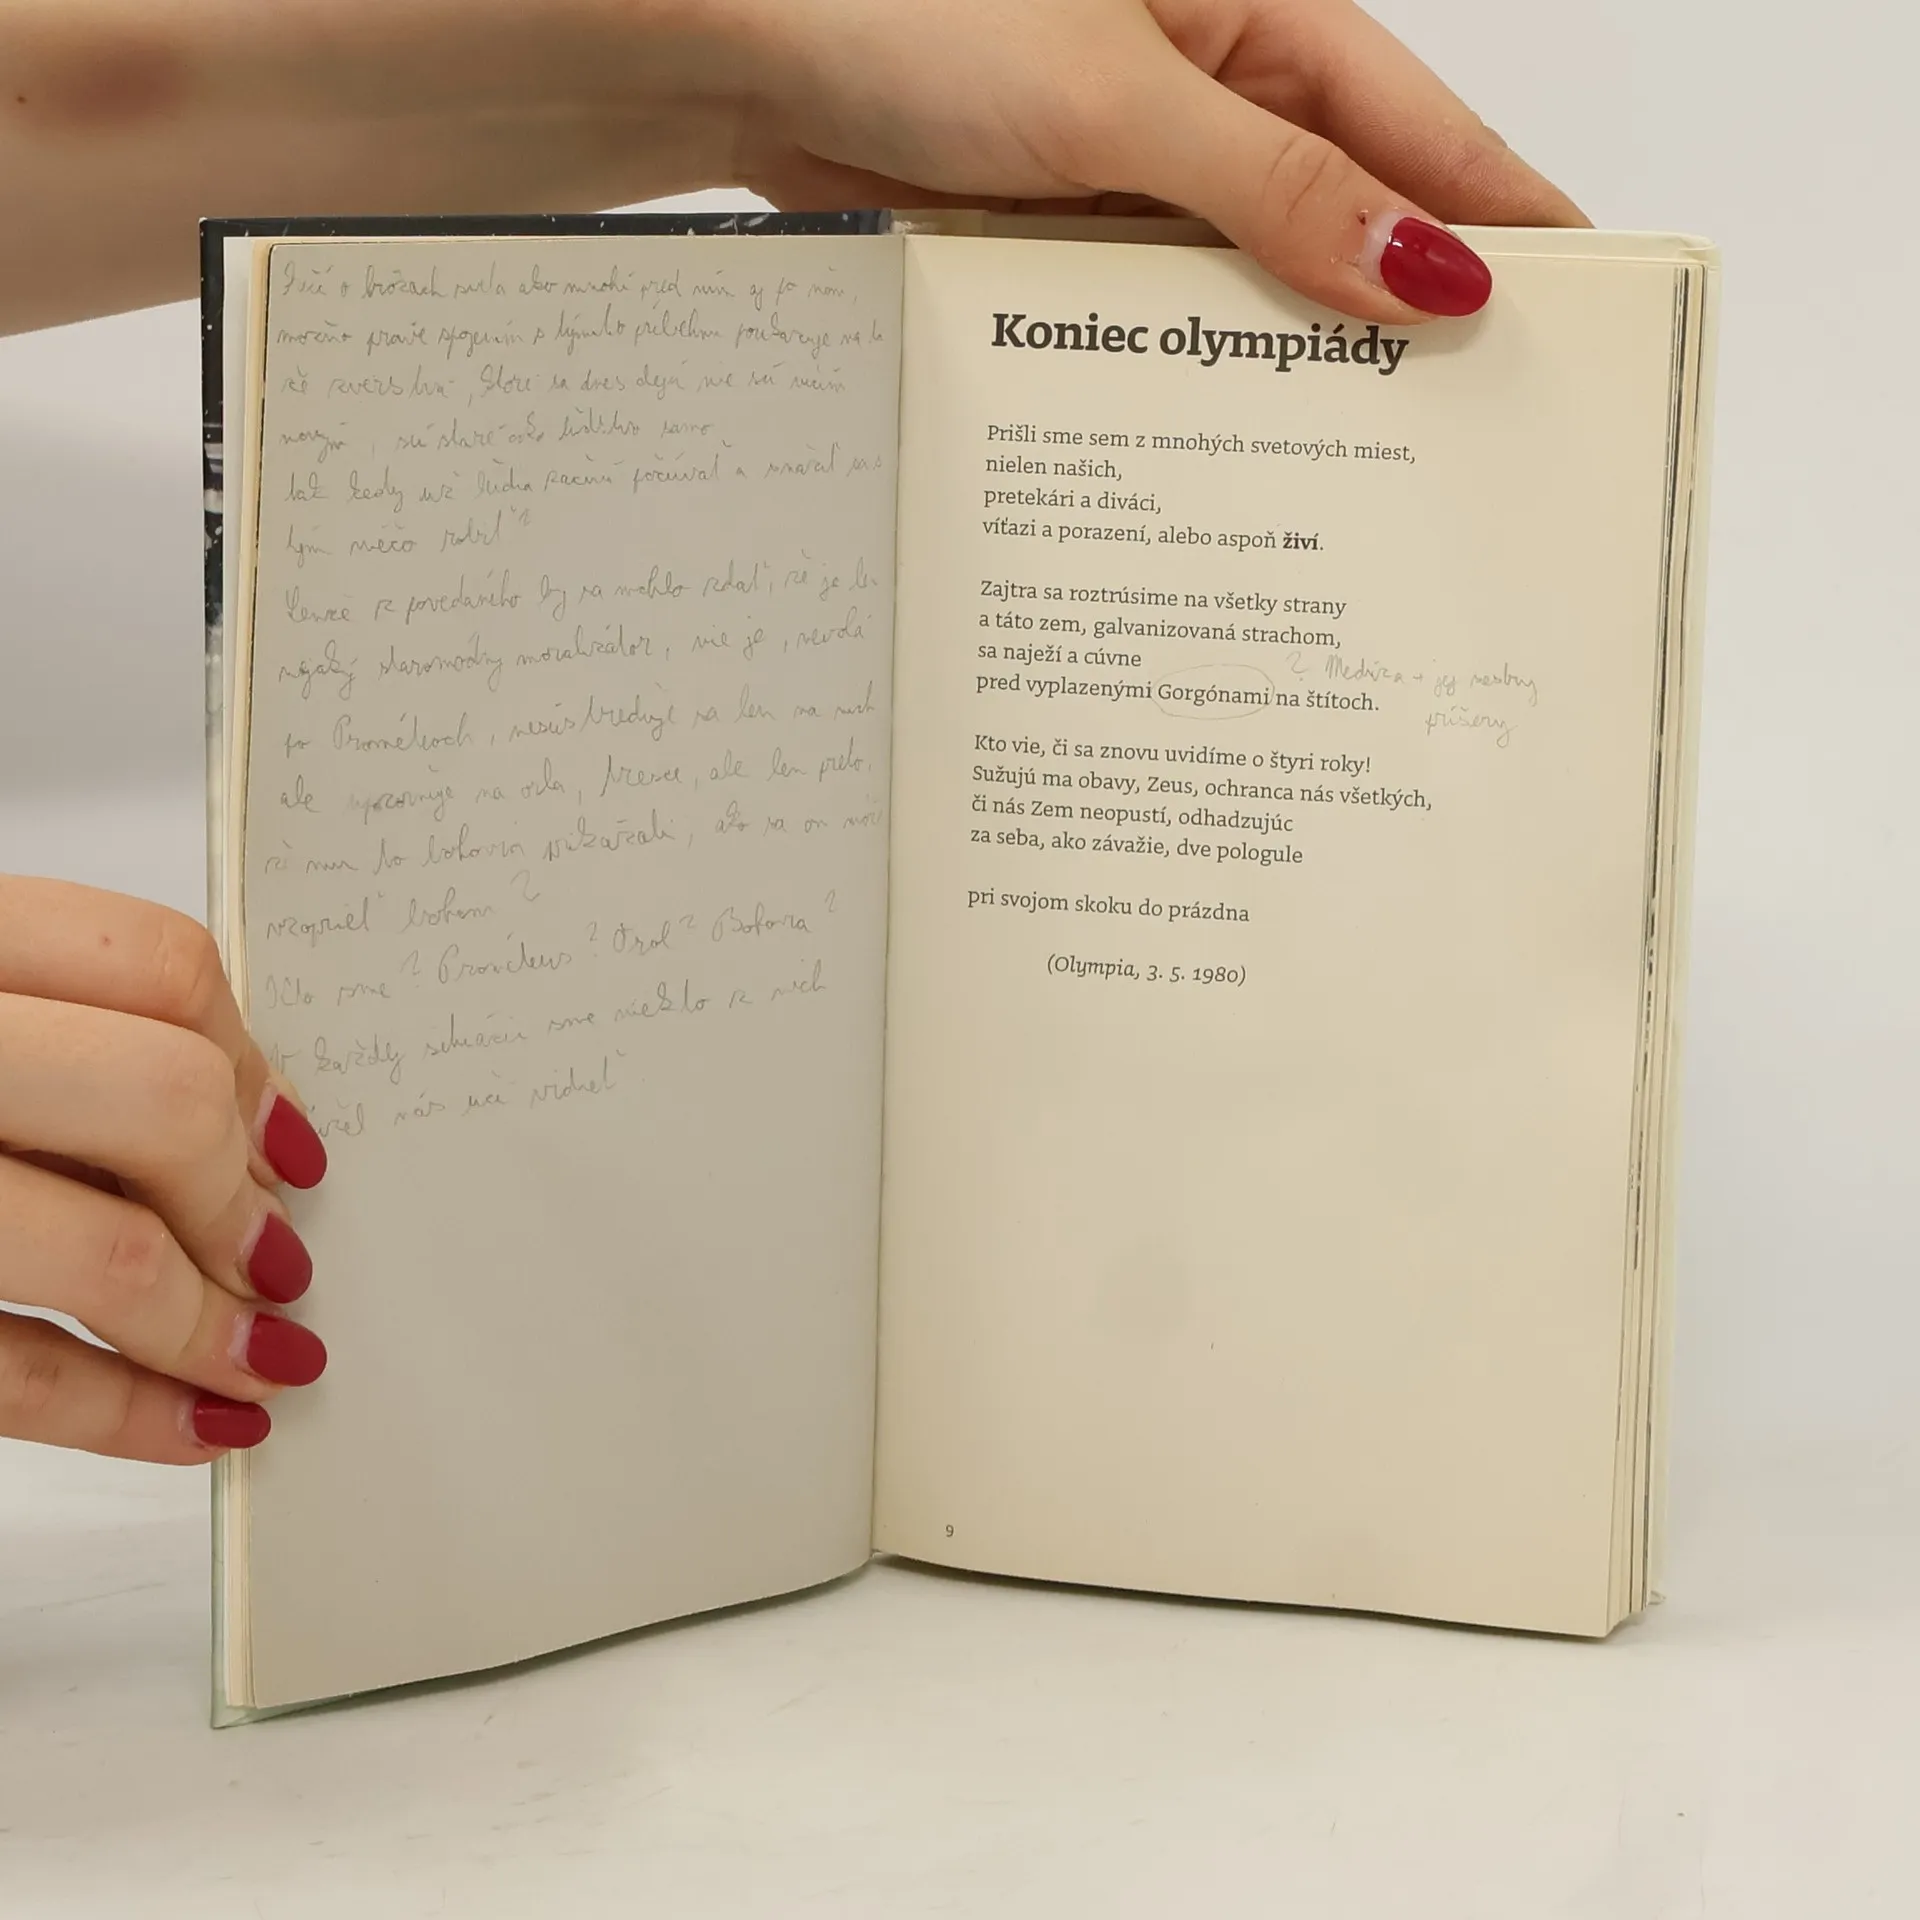 Píší o hrôzach sveta ako mnohí pred ním aj po ňom,
možno práve spojením s týmto príbehom poukazuje na to
že zverstvá, ktoré sa dnes dejú nie sú ničím
novým, sú staré ako ľudstvo samo
tak kedy už ľudia začnú počúvať a snažiť sa s
tým niečo robiť?
Lenže z povedaného by sa mohlo zdať, že je len
nejaký staromódny moralizátor, nie je, nevolá
po Prométeoch, nesústreďuje sa len na nich
ale upozorňuje na orla, trezce, ale len preto,
že mu to bohovia prikázali, ako sa on môže
vzoprieť bohom?
Kto sme? Prométeus? Orol? Bohovia?
V každej situácii sme niekto z nich
nás učí vidieť
Koniec olympiády
Prišli sme sem z mnohých svetových miest,
nielen našich,
pretekári a diváci,
víťazi a porazení, alebo aspoň živí.
Zajtra sa roztrúsime na všetky strany
a táto zem, galvanizovaná strachom,
sa naježí a cúvne
pred vyplazenými Gorgónami na štítoch.
? Medúza + jej sestry
príšery
Kto vie, či sa znovu uvidíme o štyri roky!
Sužujú ma obavy, Zeus, ochranca nás všetkých,
či nás Zem neopustí, odhadzujúc
za seba, ako závažie, dve pologule
pri svojom skoku do prázdna
(Olympia, 3. 5. 1980)
9